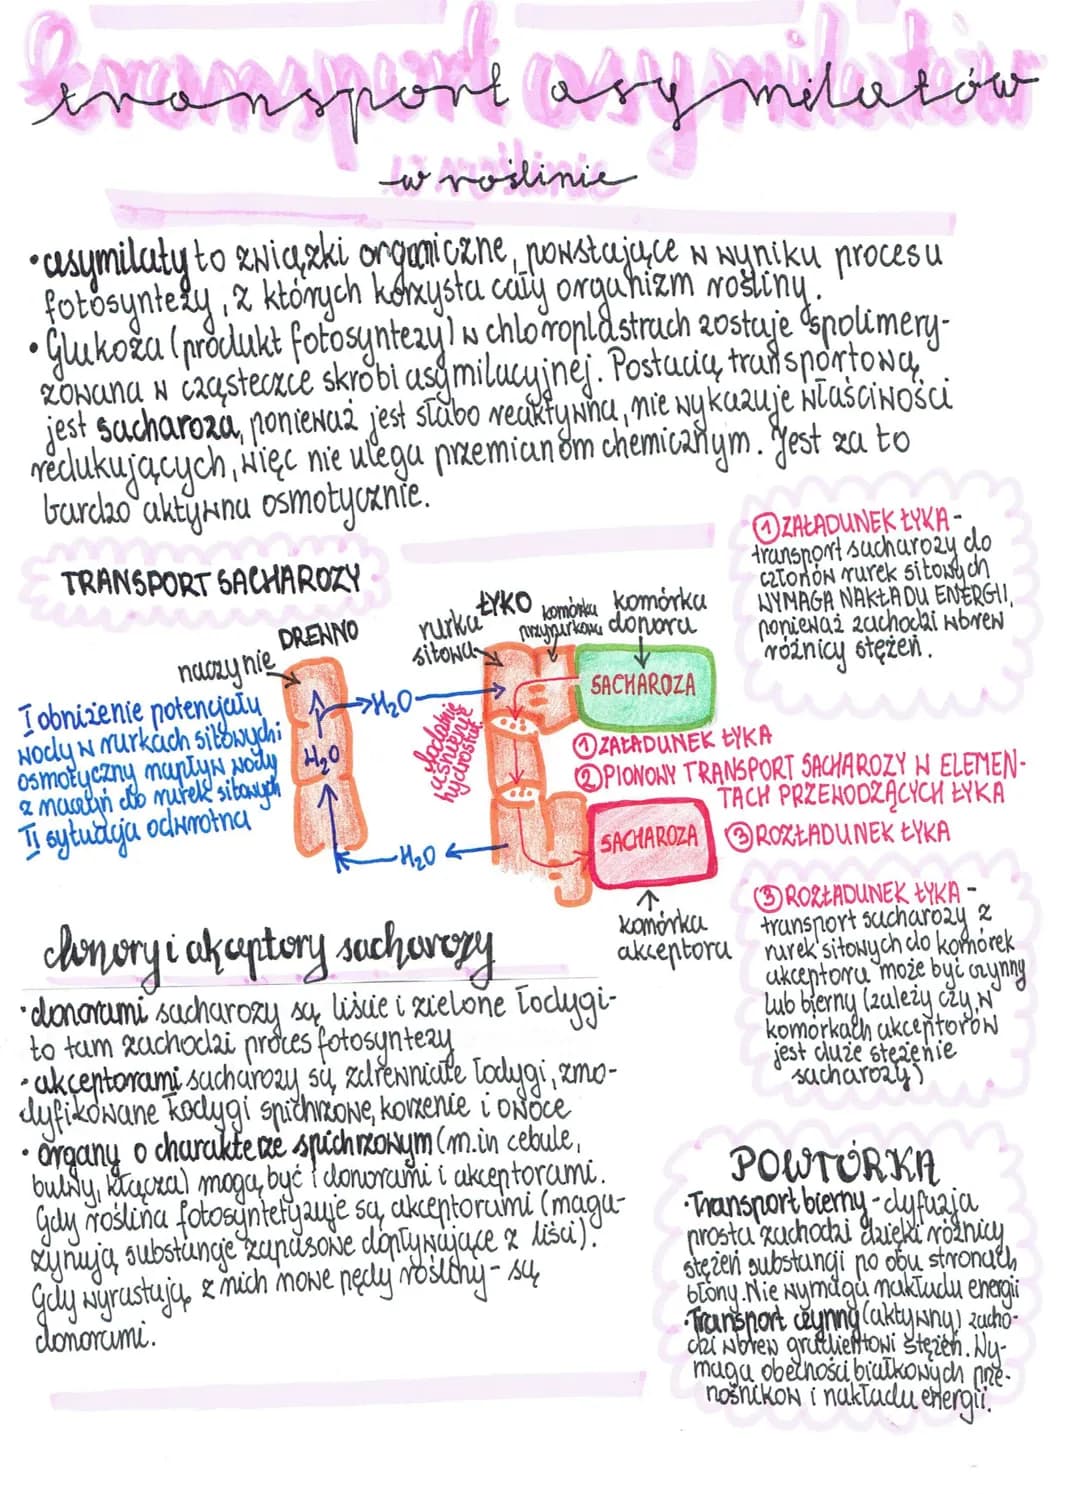 transport asymilatów
w roślinie
•asymilaty to związki organiczne, powstające w wyniku procesu
fotosyntezy, z których korzysta cały organizm rośliny.
•Glukoza (produkt fotosyntezy) w chloroplastrach zostaje spolimery-
zowana w cząsteczce skrobi asymilacyjnej. Postacią transportową
jest sacharoza, ponieważ jest słabo reaktywna, nie wykazuje właściwości
redukujących, więc nie ulega przemianom chemicznym. Jest za to
bardzo aktywna osmotycznie.
TRANSPORT SACHAROZY
① ZAŁADUNEK ŁYKA -
transport sacharozy do
członów rurek sitowych
WYMAGA NAKŁADU ENERGII,
ponieważ zachodzi wbrew
różnicy stężeń.
DREWNO
naczynie
ŁYKO
rurka
sitowa
komórka
przyrurkowa
komórka
donora
SACHAROZA
H₂O
H₂O
H₂O
dodatnie
ciśnienie
hydrostat.
I obniżenie potencjału
wody w rurkach sitowych i
osmotyczny napływ wody
z naczyń do rurek sitowych
II sytuacja odwrotna
① ZAŁADUNEK ŁYKA
② PIONOWY TRANSPORT SACHAROZY W ELEMEN-
TACH PRZEWODZĄCYCH ŁYKA
③ ROZŁADUNEK ŁYKA
SACHAROZA
komórka
akceptora
③ ROZŁADUNEK ŁYKA -
transport sacharozy z
rurek sitowych do komórek
akceptora może być czynny
lub bierny (zależy czy w
komórkach akceptorów
jest duże stężenie
sacharozy)
donory i akceptory sacharozy
•donorami sacharozy są liście i zielone łodygi-
to tam zachodzi proces fotosyntezy
•akceptorami sacharozy są zdrewniałe łodygi, zmo-
dyfikowane łodygi spichrzowe, korzenie i owoce
•organy o charakterze spichrzowym (m.in cebule,
bulwy, kłącza) mogą być i donorami i akceptorami.
Gdy roślina fotosyntetyzuje są akceptorami (maga-
zynują substancje zapasowe dopływające z liści).
Gdy wyrastają z nich nowe pędy rośliny - są
donorami.
POWTÓRKA
•Transport bierny - dyfuzja
prosta zachodzi dzięki różnicy
stężeń substancji po obu stronach
błony. Nie wymaga nakładu energii
•Transport czynny (aktywny) zacho-
dzi wbrew gradientowi stężeń. Wy-
maga obecności białkowych prze-
nośników i nakładu energii.